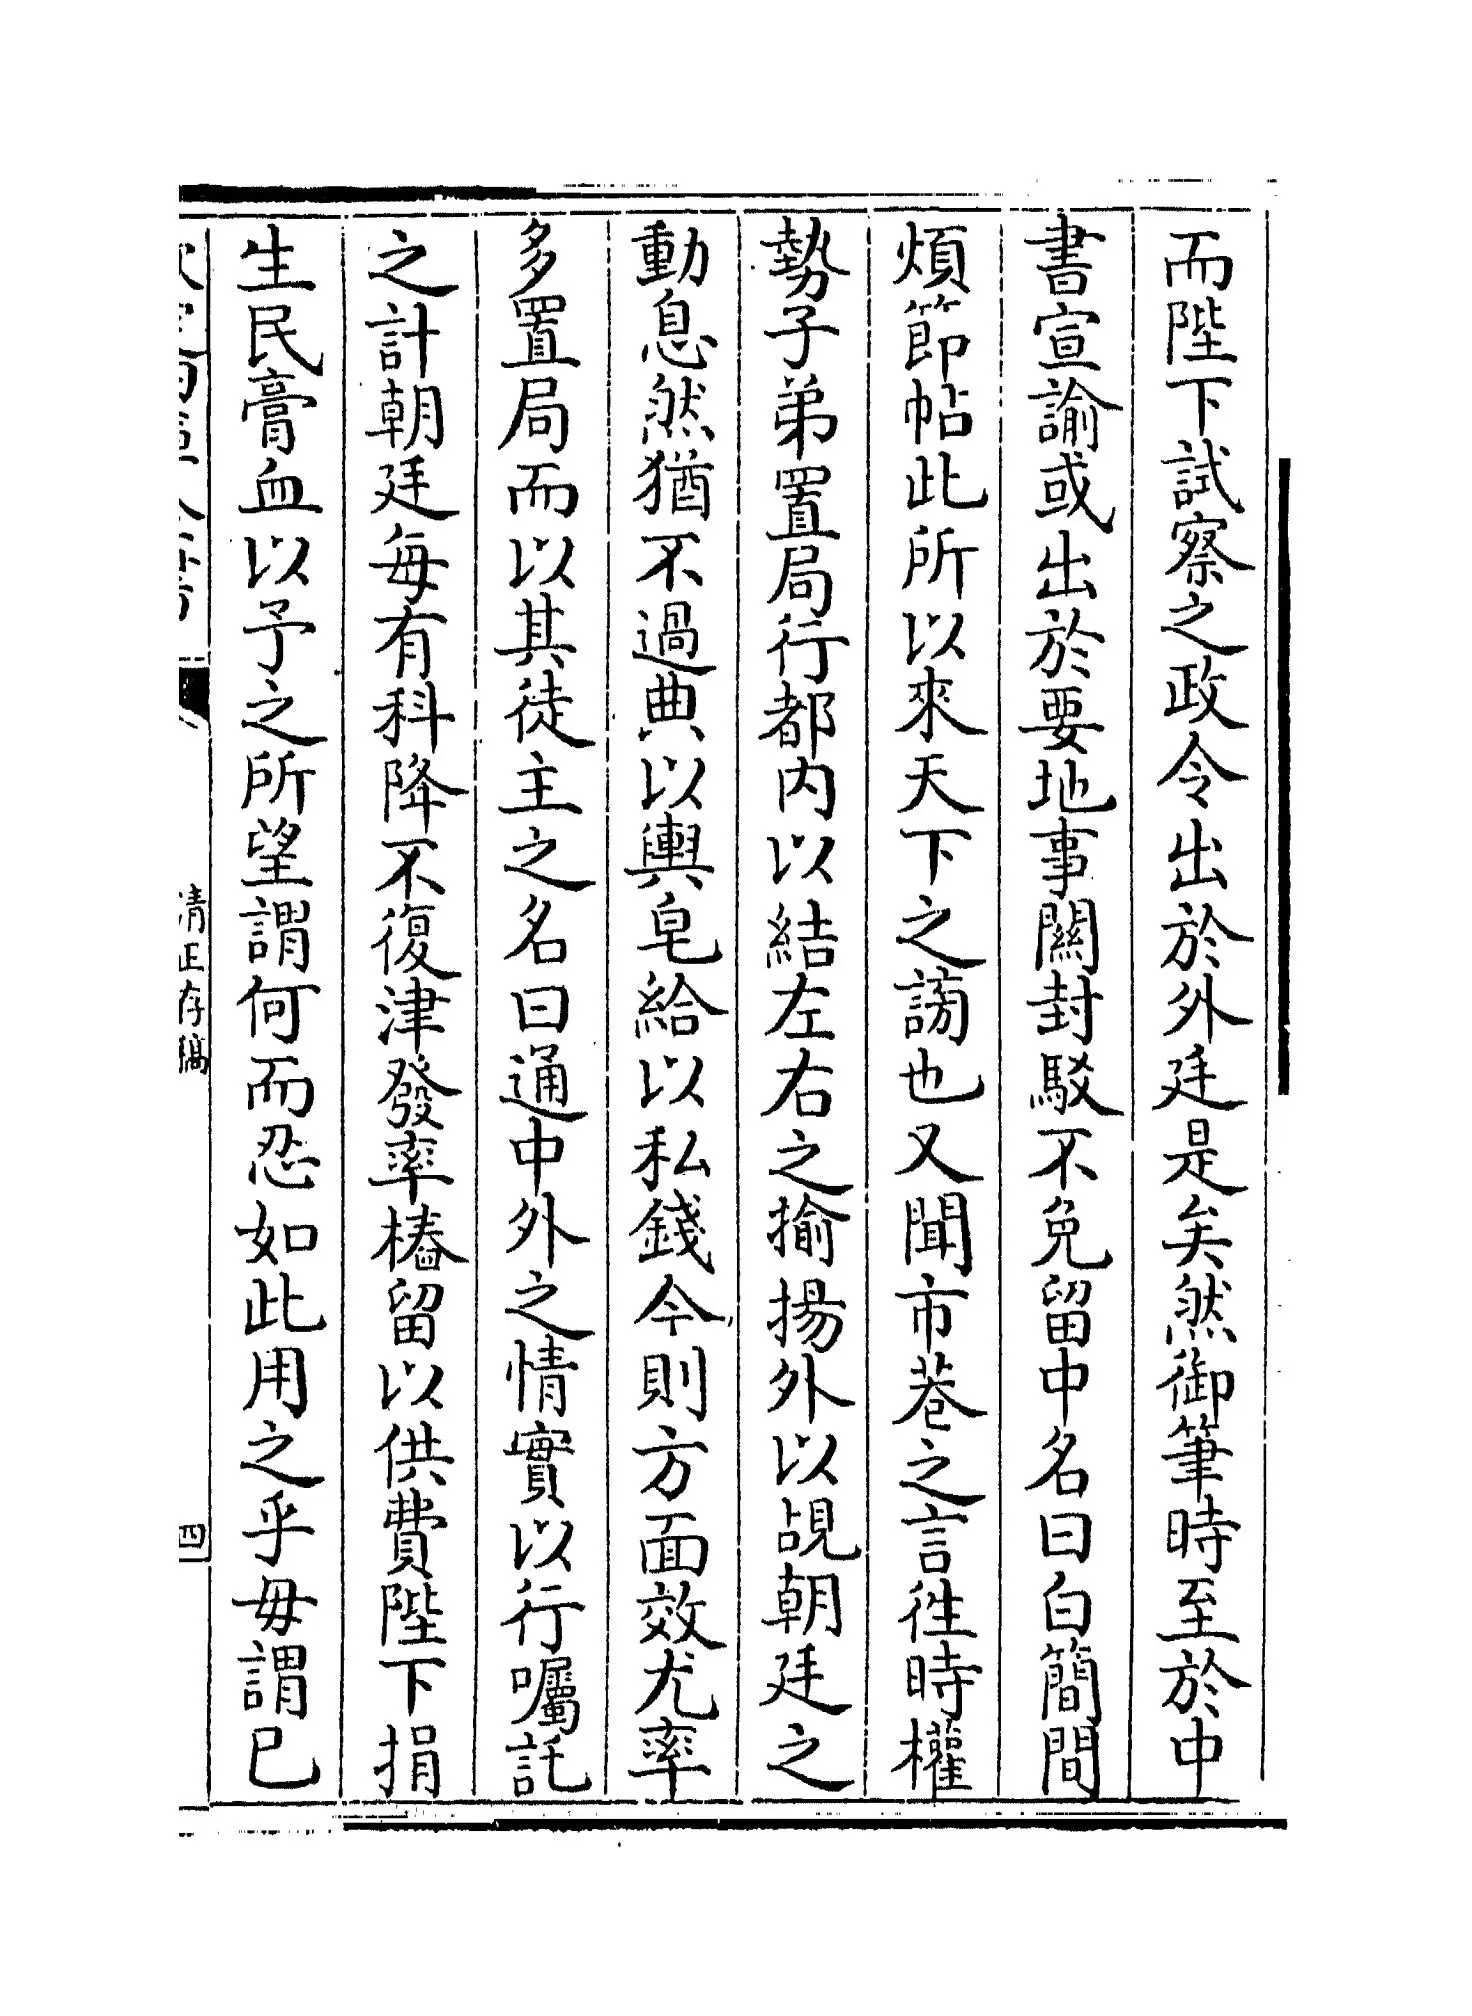 而陛下試察之政令出於外廷是矣然御筆時至於中
書宣諭或出於要地事關封駁不免留中名曰白簡間
煩節帖此所以來天下之謗也又聞市巷之言徃時權
勢子弟置局行都内以結左右之揄揚外以覘朝廷之
動息然猶不過典以輿皂給以私錢今則方面效尤率
多置局而以其徒主之名曰通中外之情實以行囑託
之計朝廷每有科降不復津發率樁留以供費陛下捐
生民膏血以予之所望謂何而忍如此用之乎毋謂已
清正存稿
四